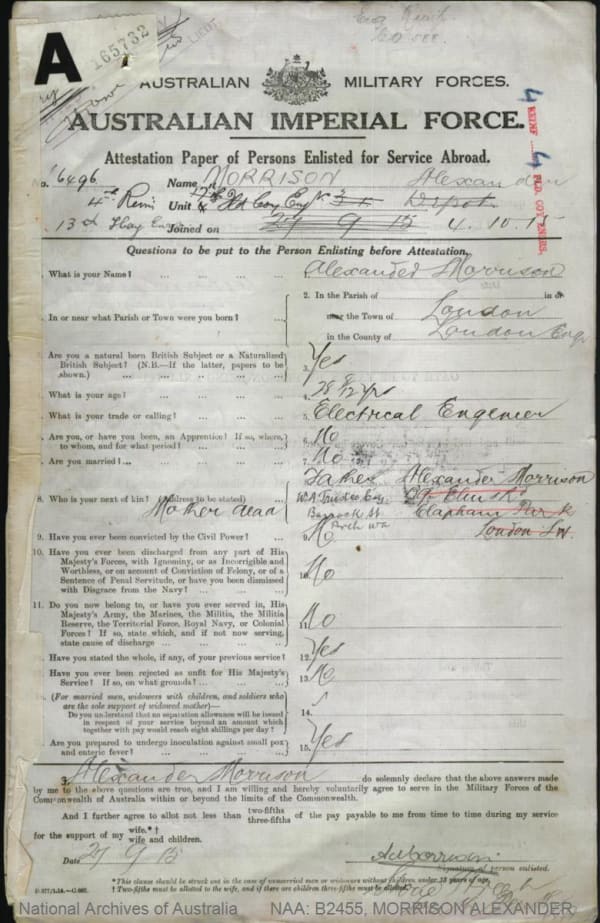 A
165732
AUSTRALIAN MILITARY FORCES.
AUSTRALIAN IMPERIAL FORCE.
Attestation Paper of Persons Enlisted for Service Abroad.
No. 6496 Name MORRISON Alexander
4th Rein Unit Depot
13th Joined on 27 9 15 4.10.15
4 REINF 4 FLD. COY ENGNRS.
Questions to be put to the Person Enlisting before Attestation.
. What is your Name? ... ... ... Alexander Morrison
. In or near what Parish or Town were you born? ... 2. In the Parish of in or
near the Town of London
in the County of London Eng
. Are you a natural born British Subject or a Naturalized British Subject? (N.B.—If the latter, papers to be shown.) 3. Yes
. What is your age? ... ... ... 4. 28 8/12 yrs
. What is your trade or calling? ... ... 5. Electrical Engineer
. Are you, or have you been, an Apprentice? If so, where, to whom, and for what period? 6. No
. Are you married? ... ... 7. No
8. Who is your next of kin? (Address to be stated) Father Alexander Morrison
Mother dead
Clapham Park
London S.W.
9. Have you ever been convicted by the Civil Power? ... 9. No
10. Have you ever been discharged from any part of His
Majesty's Forces, with Ignominy, or as Incorrigible and
Worthless, or on account of Conviction of Felony, or of a
Sentence of Penal Servitude, or have you been dismissed
with Disgrace from the Navy? ... 10. No
11. Do you now belong to, or have you ever served in, His
Majesty's Army, the Marines, the Militia, the Militia
Reserve, the Territorial Force, Royal Navy, or Colonial
Forces? If so, state which, and if not now serving,
state cause of discharge ... 11. No
. Have you stated the whole, if any, of your previous service? 12. Yes
. Have you ever been rejected as unfit for His Majesty's
Service? If so, on what grounds? ... 13. No
. (For married men, widowers with children, and soldiers who
are the sole support of widowed mother)—
Do you understand that no separation allowance will be issued
in respect of your service beyond an amount which
together with pay would reach eight shillings per day? 14.
. Are you prepared to undergo inoculation against small pox
and enteric fever? ... 15. Yes
I, Alexander Morrison do solemnly declare that the above answers made
by me to the above questions are true, and I am willing and hereby voluntarily agree to serve in the Military Forces of the
Commonwealth of Australia within or beyond the limits of the Commonwealth.
And I further agree to allot not less than two-fifths three-fifths of the pay payable to me from time to time during my service
for the support of my wife.*† wife and children.
Date 27 9 15
A Morrison
Signature of person enlisted.
*This clause should be struck out in the case of unmarried men or widowers without children under 18 years of age.
† Two-fifths must be allotted to the wife, and if there are children three-fifths must be allotted.
National Archives of Australia NAA: B2455, MORRISON ALEXANDER